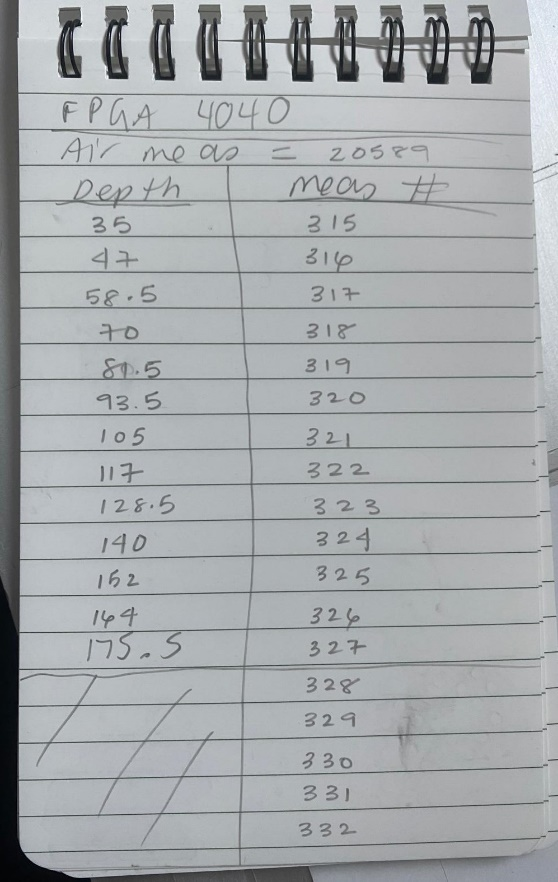 FPGA 4040
Air meas = 20589
Depth meas #
35 315
47 316
58.5 317
70 318
81.5 319
93.5 320
105 321
117 322
128.5 323
140 324
152 325
164 326
175.5 327
328
329
330
331
332